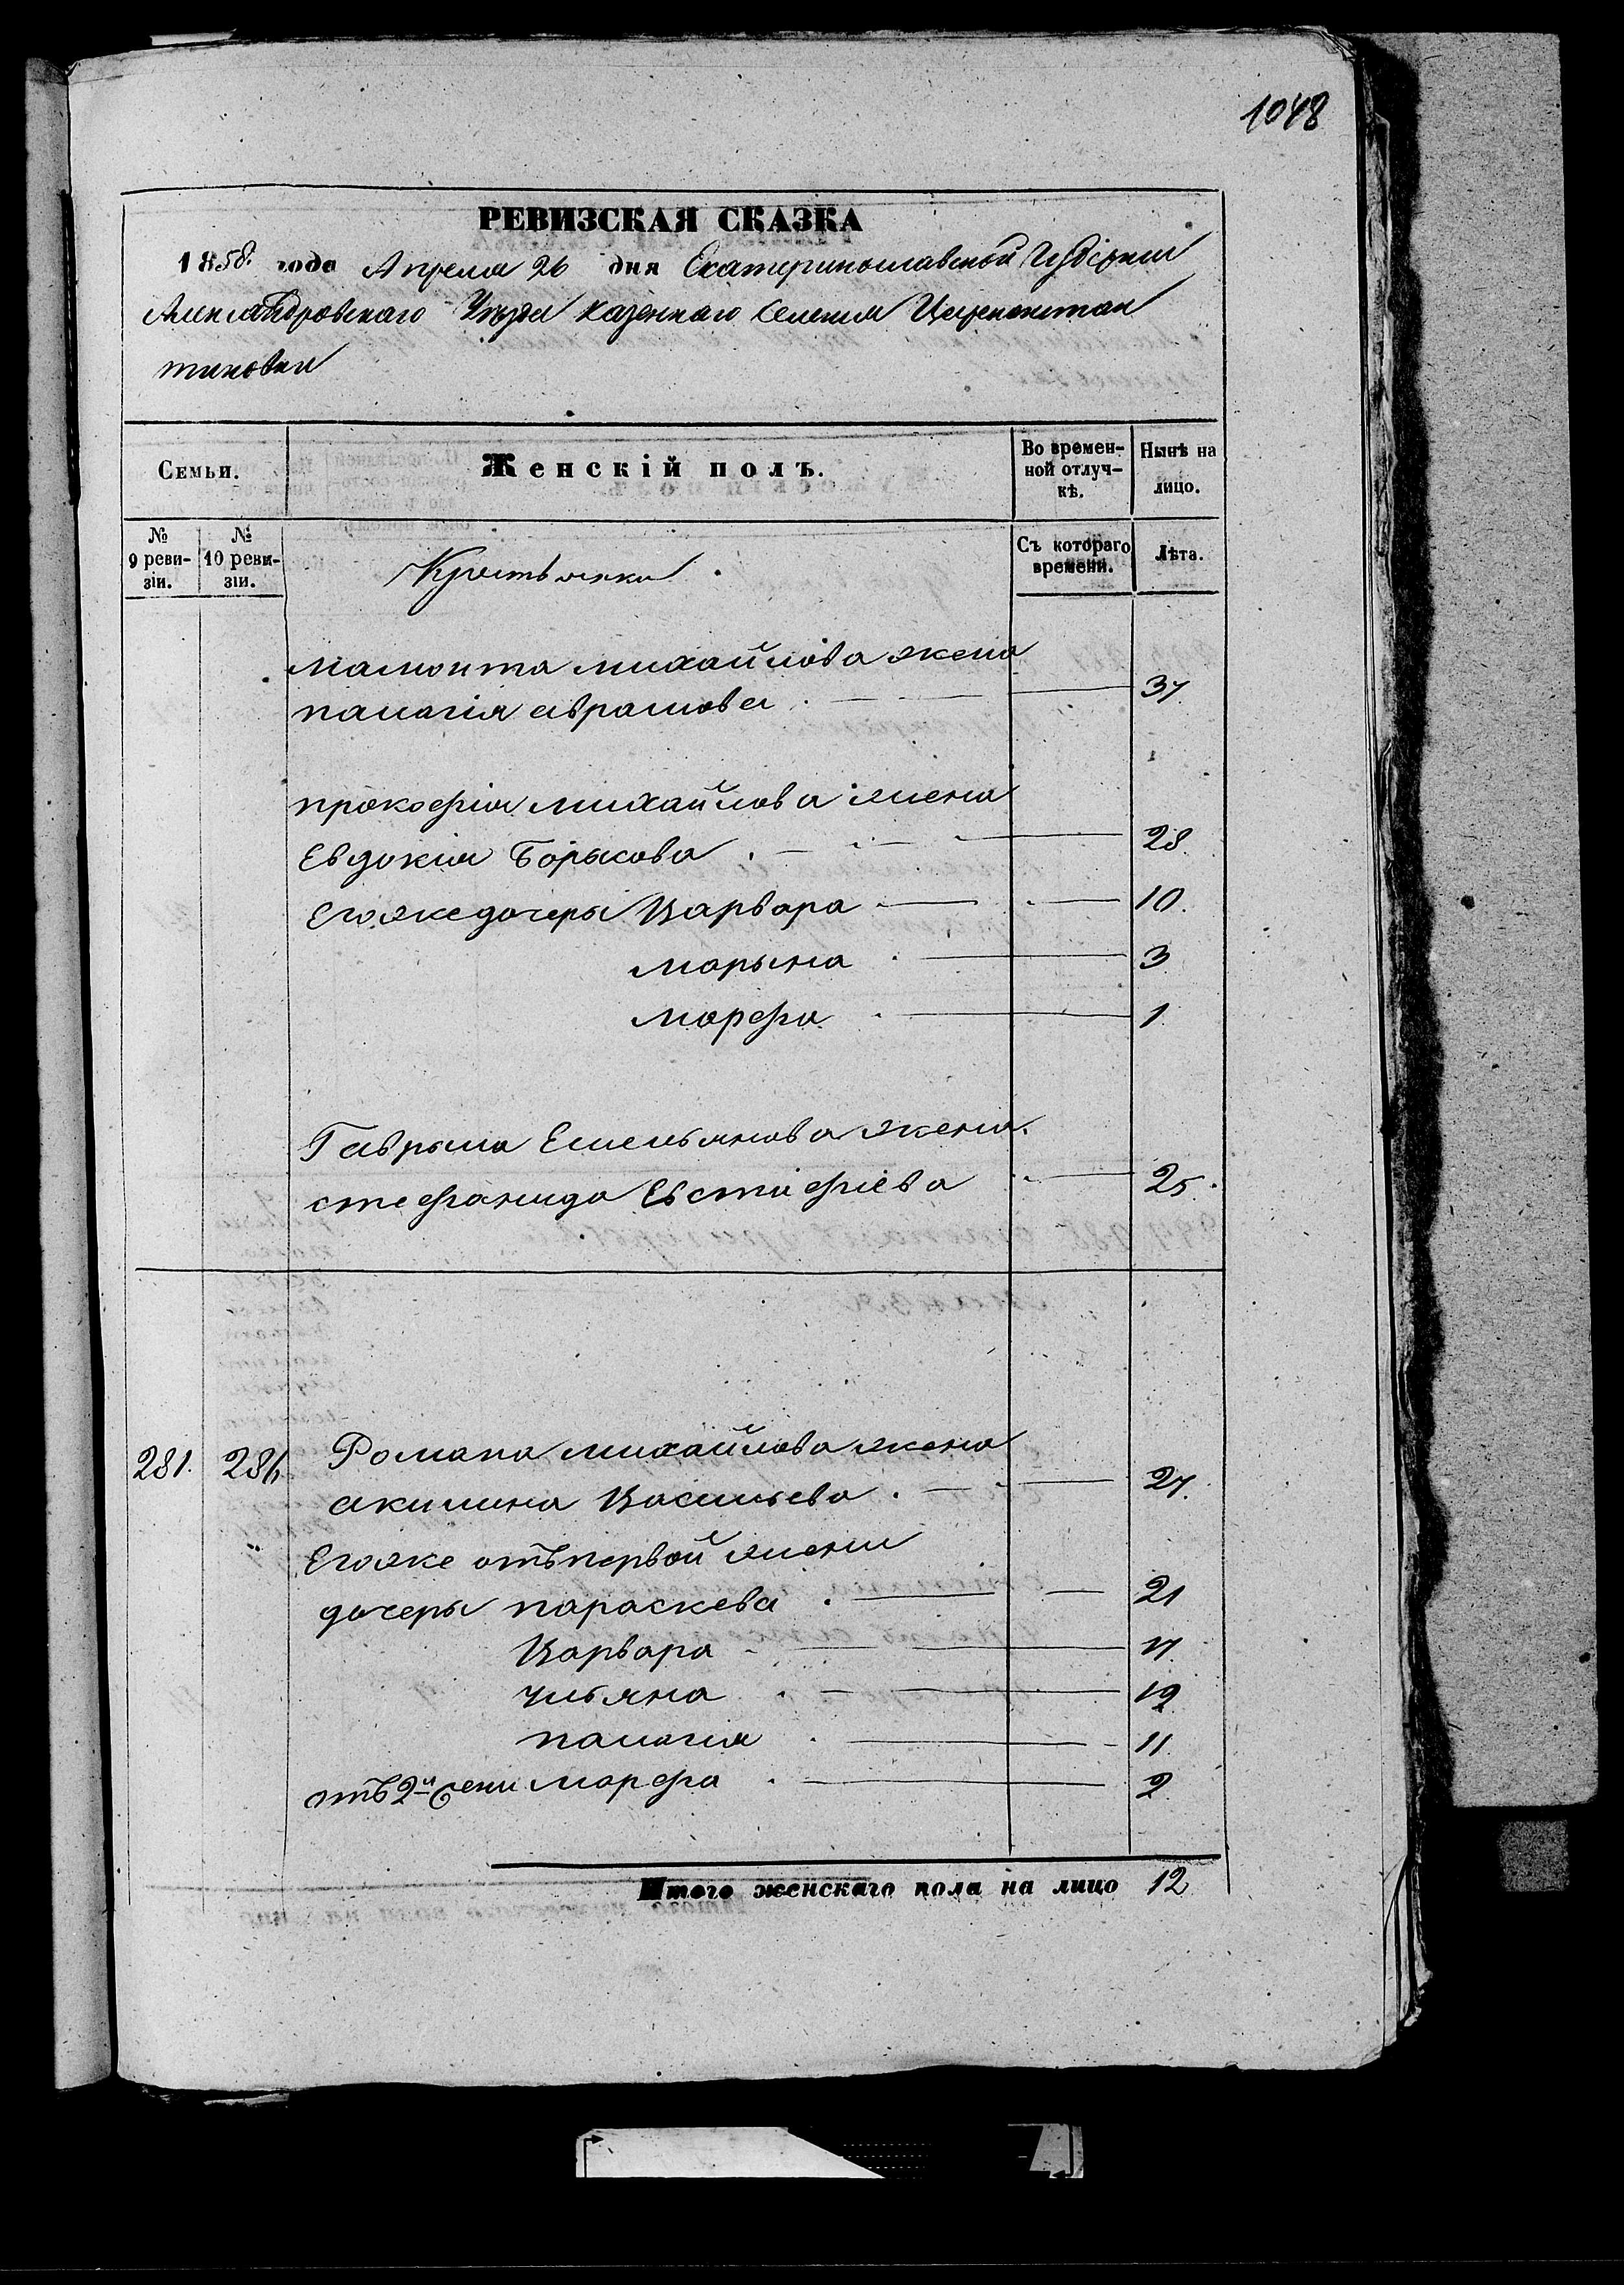 1048
РЕВИЗСКАЯ СКАЗКА
1858. года Апреля 26 дня Екатеринославской Губернии
Александровского Уезда казенного селения Цареконстан
тиновки
Семьи.
Женскій полъ.
Во времен-
ной отлуч-
кѣ.
Нынѣ на
лицо.
№
9 реви-
зіи.
№
10 реви-
зіи.
Крестьянки
Съ котораго
времени.
Лѣта.
мамонта михайлова жена
палагія аврамова 37
прокофія михайлова жена
Евдокия Борысова 28
Егоже дочеры Варвара 10.
марына 3
марфа 1.
Гаврыла Емельянова жена.
стефанида Евстафіева 25.
281. 286 Романа михайлова жена
акилина Васильева 27.
Егоже отъ первой жены
дочеры параскева 21
Варвара 17.
ульяна 19
палагия 11.
отъ 2й жены марфа 2.
Итого женскаго пола на лицо 12